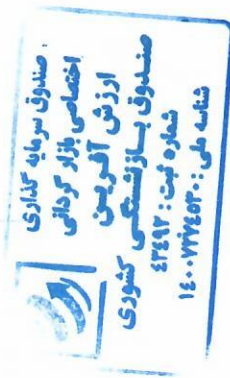 صندوق سرمایه گذاری
اختصاصی بازار گردانی
ارزش آفرین
صندوق بازنشستگی کشوری
شماره ثبت : ۴۳۴۹۲
شناسه ملی : ۱۴۰۰۷۷۲۷۴۵۳۰